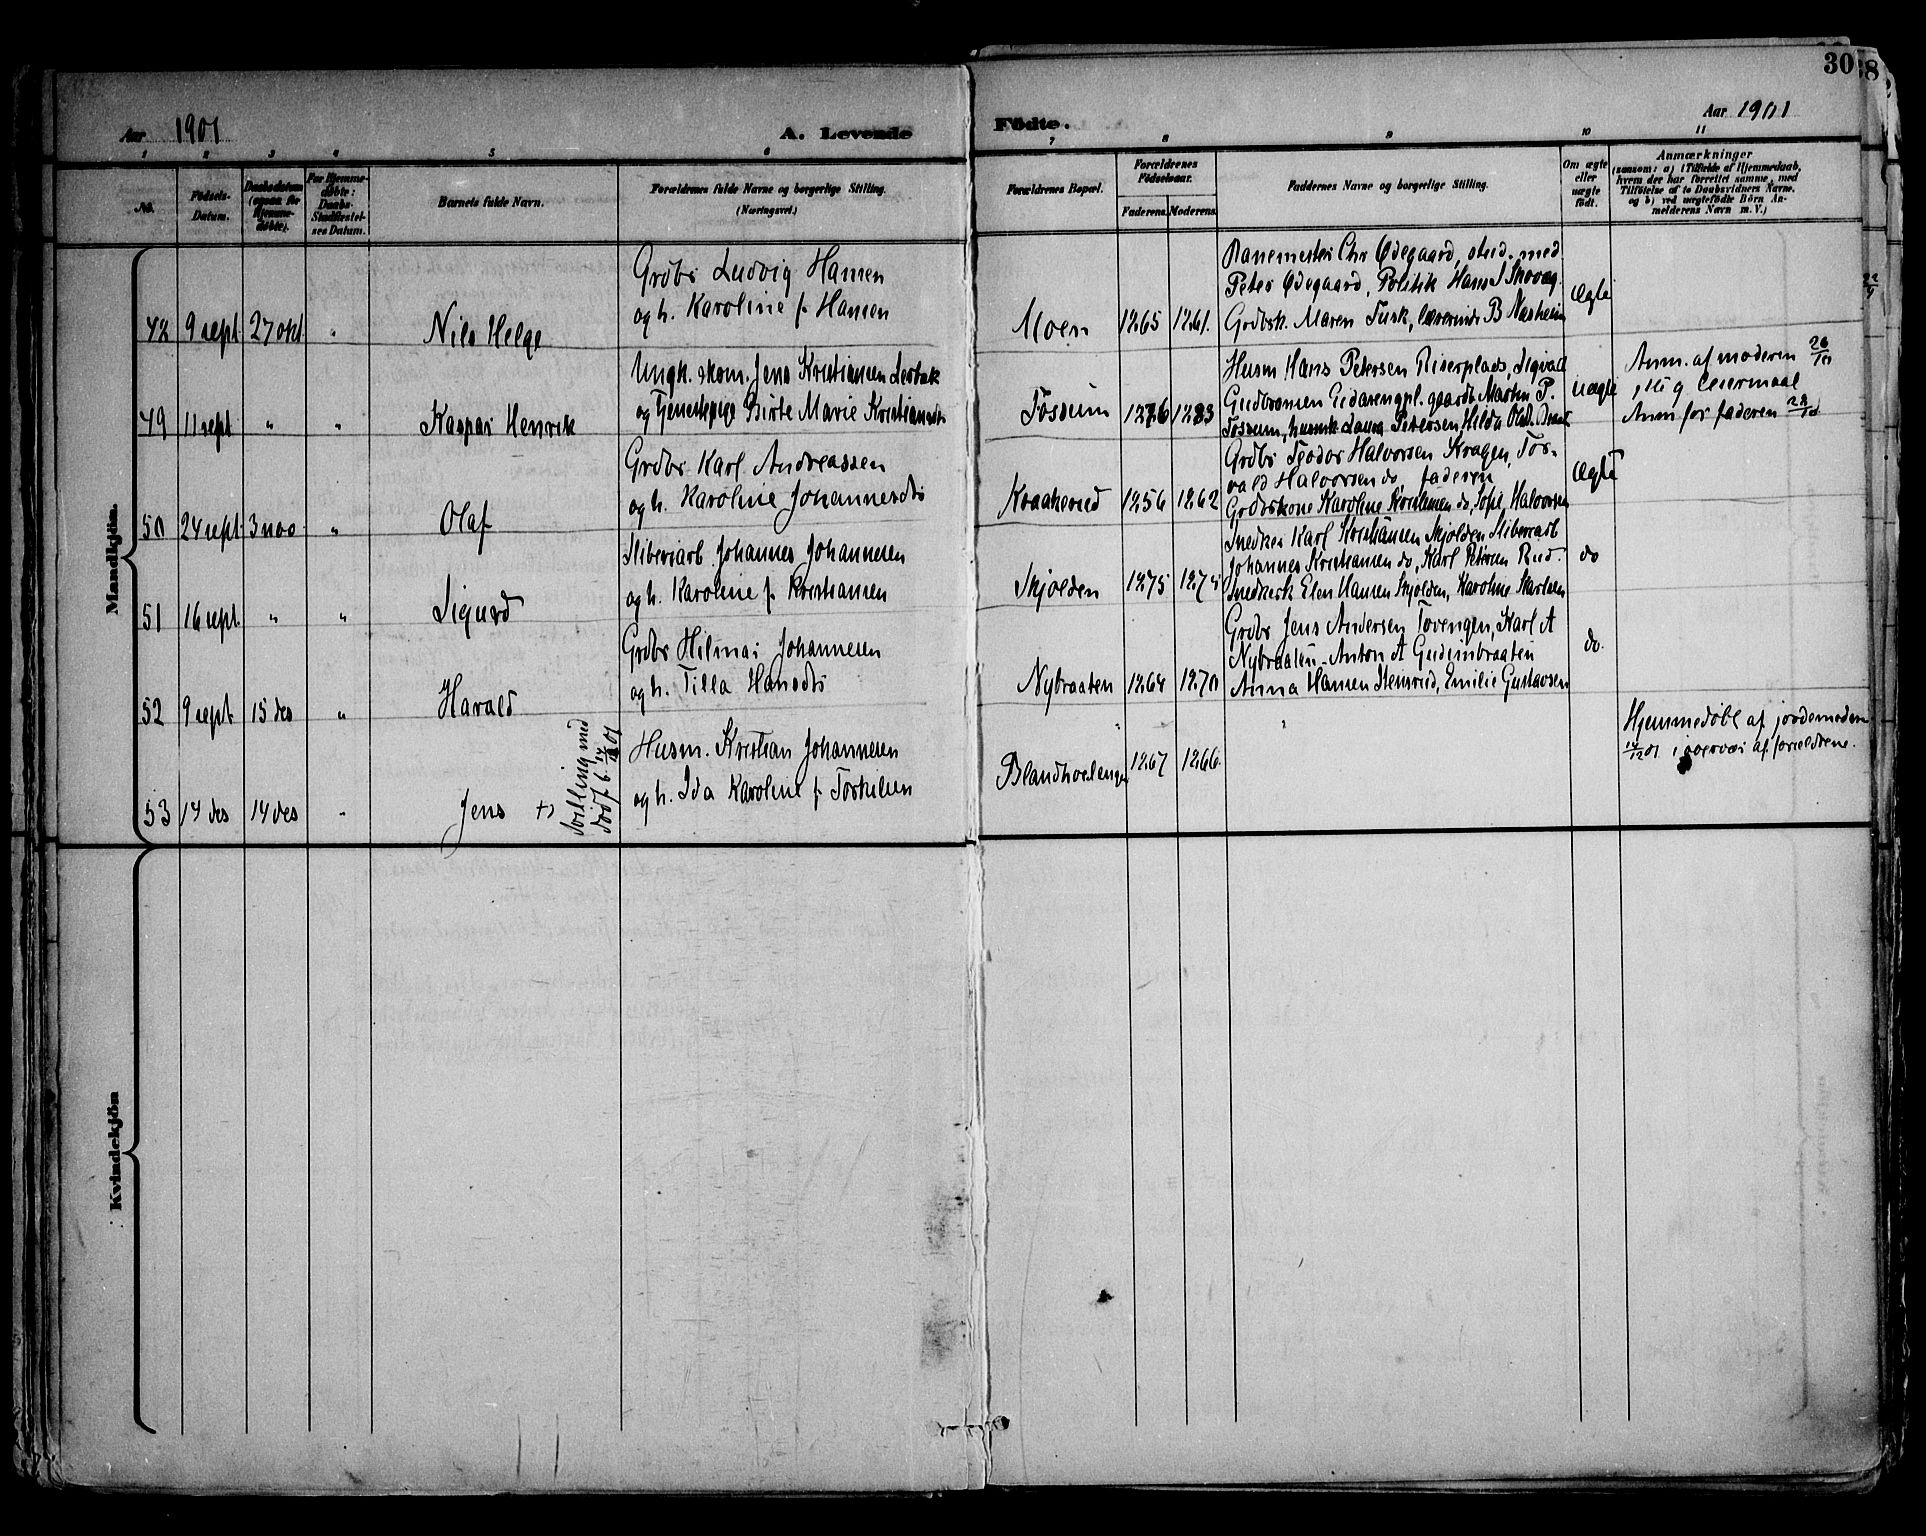 30
Aar 1901
A. Levende
Födte.
Aar 1901
1 2 3 4 5 6 7 8 9 10 11
No.
Födsels-
Datum.
Daabsdatum
(ogsaa for
Hjemme-
døbte).
For Hjemme-
døbte:
Daabs-
Stadfæstel-
ses Datum.
Barnets fulde Navn.
Forældrenes fulde Navne og borgerlige Stilling.
(Næringsvei.)
Forældrenes Bopæl.
Forældrenes
Födselsaar.
Faderens. Moderens.
Faddernes Navne og borgerlige Stilling.
Om ægte
eller
uægte
födt.
Anmærkninger
(saasom: a) i Tilfælde af Hjemmedaab,
hvem der har forrettet samme, med
Tilföielse af to Daabsvidners Navne,
og b) ved uægtefödte Börn An-
melderens Navn m. V.)
Mandkjön.
48 9 sept 27 okt " Nils Helge
Grdbr Ludvig Hansen
og h. Karoline f. Hansen
Moen 1865 1861.
Banemester Chr Ødegaard, stud. med
Peter Ødegaard, Politik Hans J Skovog
Grdbsk. Maren Fusk, lærerinde B Næsheim
Ægte
49 11 sept " " Kaspar Henrik
Ungk. skom. Jens Kristiansen
og Tjenestepige Birte Marie Kristiansdtr
Fossum 1876 1883
Husm Hans Petersen Riserplads, Sigvall
Gudbransen gaardb Martin P.
Fossum, husmk Laura Petersen, Hilda
Uægte
Anm. af moderen 26/10
leiermaal
Anm for faderen 28/10
50 24 sept 3 nov " Olaf
Grdbr Karl Andreassen
og h. Karoline Johannesdtr
Kraakerud 1856 1862
Grdbr Teodor Halvorsen Kragen, Tor-
vald Halvorsen do, faderen
Grdbskone Karoline Kristiansen do, Sofie Halvorsen
Ægte
51 16 sept " " Sigurd
Sliberiarb. Johannes Johannesen
og h. Karoline f. Kristiansen
Skjolden 1875 1875
Snedker Karl Kristiansen Skjolden Sliberiarb
Johannes Kristiansen do, Karl Petersen Rud.
Snedkersk Elen Hansen Skjolden, Karoline
do
52 9 sept 15 des " Harald
Grdbr Hilmar Johannesen
og h. Tilla Hansdtr
Nybraaten 1864 1870
Grdbr Jens Andersen Tovengen, Karl A
Nybraaten. Anton A Gudimbraaten
Anna Hansen Stensrud, Emilie Gustavsen
do.
53 14 des 14 des " Jens
tvilling med
dödf. b. 14/12 01
Husm. Kristian Johannesen
og h. Ida Karoline f. Torkilsen
1867 1866
"
Hjemmedöbt af jordemoderen
14/12 01 i overvær af forældrene.
Kvindekjön